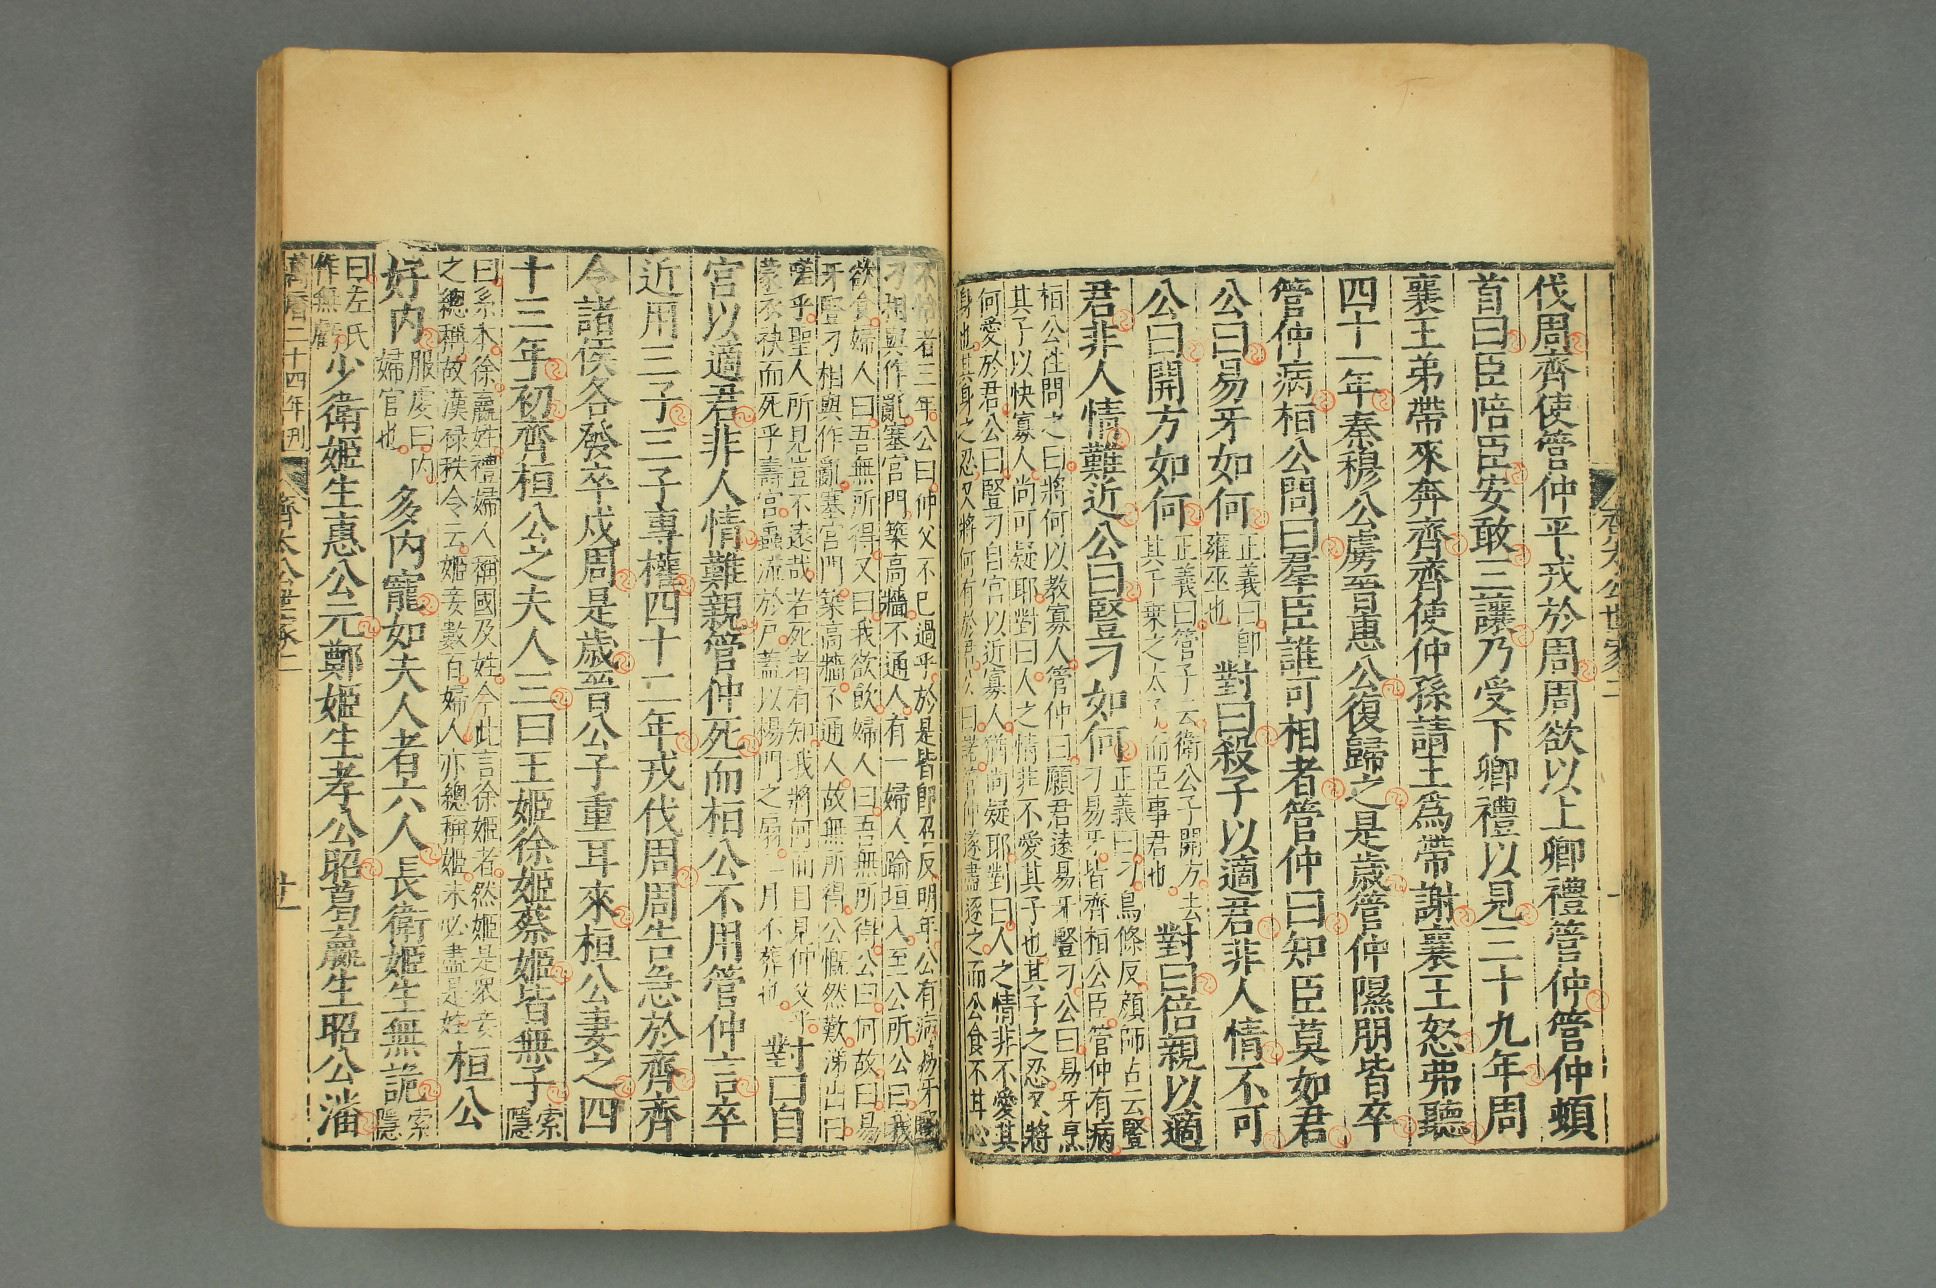 齊太公世家二
伐周齊使管仲平戎於周周欲以上卿禮管仲管仲頓
首曰臣陪臣安敢三讓乃受下卿禮以見三十九年周
襄王弟帶來奔齊齊使仲孫請王爲帶謝襄王怒弗聽
四十一年秦穆公虜晉惠公復歸之是歲管仲隰朋皆卒
管仲病桓公問曰羣臣誰可相者管仲曰知臣莫如君
公曰易牙如何
正義曰即
雍巫也
對曰殺子以適君非人情不可
公曰開方如何
正義曰管子云衛公子開方去
其千乗之太子而臣事君也
對曰倍親以適
君非人情難近公曰豎刁如何
正義曰刁鳥條反顔師古云豎
刁易牙皆齊桓公臣管仲有病
桓公往問之曰將何以教寡人管仲曰願君遠易牙豎刁公曰易牙烹
其子以快寡人尚可疑耶對曰人之情非不愛其子也其子之忍又將
何愛於君公曰豎刁自宮以近寡人猶尚疑耶對曰人之情非不愛其
身也其身之忍又將何有於君公曰諾管仲遂盡逐之而公食不甘心
不怡者三年公曰仲父不已過乎於是皆即召反明年公有病易牙豎
刁相與作亂塞宮門築高牆不通人有一婦人踰垣入至公所公曰我
欲食婦人曰吾無所得又曰我欲飲婦人曰吾無所得公曰何故曰易
牙豎刁相與作亂塞宮門築高牆不通人故無所得公慨然歎涕出曰
嗟乎聖人所見豈不遠哉若死者有知我將何面目見仲父乎
蒙衣袂而死乎壽宮蟲流於戶蓋以楊門之扇二月不葬也
對曰自
宮以適君非人情難親管仲死而桓公不用管仲言卒
近用三子三子專權四十二年戎伐周周告急於齊齊
令諸侯各發卒戍周是歲晉公子重耳來桓公妻之四
十三年初齊桓公之夫人三曰王姬徐姬蔡姬皆無子
索
隱
曰系本徐嬴姓禮婦人稱國及姓今此言徐姬者然姬是衆妾
之總稱故漢祿秩令云姬妾數百婦人亦總稱姬未必盡是姓
桓公
好內
服虔曰內
婦官也
多內寵如夫人者六人長衛姬生無詭
索
隱
曰左氏
作無虧
少衛姬生惠公元鄭姬生孝公昭葛嬴生昭公潘
萬曆二十四年刊
齊太公世家二
廿一